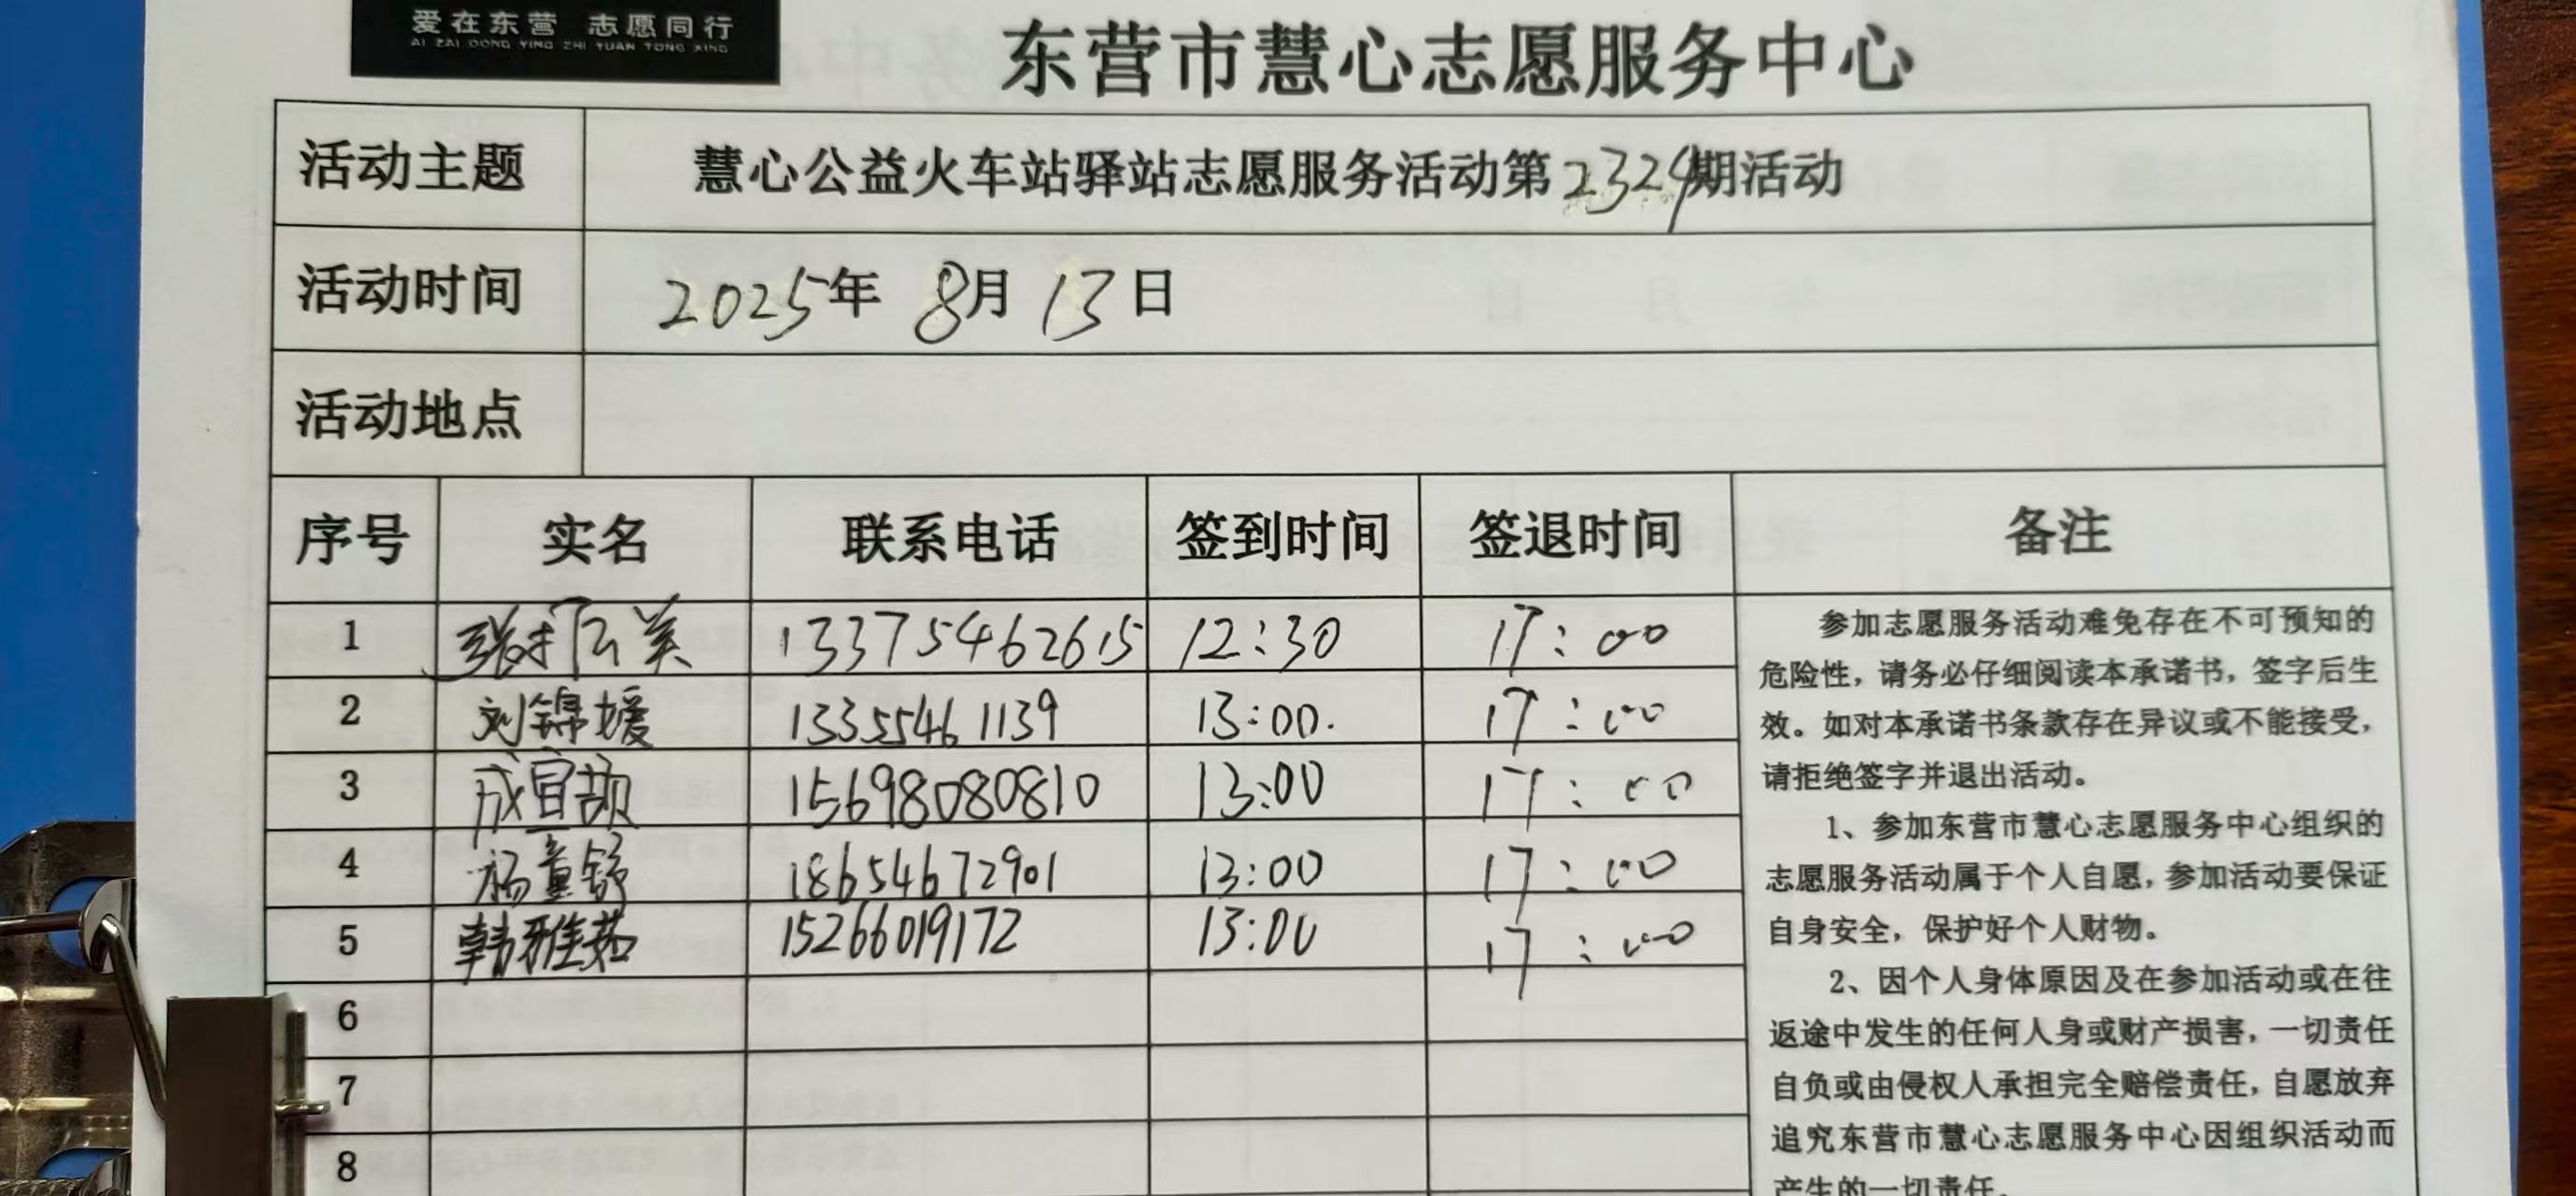 爱在东营 志愿同行
AI ZAI DONG YING ZHI YUAN TONG XING
东营市慧心志愿服务中心
活动主题 慧心公益火车站驿站志愿服务活动第2324期活动
活动时间 2025年 8月 13日
活动地点
序号 实名 联系电话 签到时间 签退时间 备注
1 13375462615 12:30 17:00
2 刘锦媛 13355461139 13:00. 17:00
3 成宜颉 15698080810 13:00 17:00
4 杨童舒 18654672901 13:00 17:00
5 韩雅茹 15266019172 13:00 17:00
6
7
8
参加志愿服务活动难免存在不可预知的
危险性，请务必仔细阅读本承诺书，签字后生
效。如对本承诺书条款存在异议或不能接受，
请拒绝签字并退出活动。
1、参加东营市慧心志愿服务中心组织的
志愿服务活动属于个人自愿，参加活动要保证
自身安全，保护好个人财物。
2、因个人身体原因及在参加活动或在往
返途中发生的任何人身或财产损害，一切责任
自负或由侵权人承担完全赔偿责任，自愿放弃
追究东营市慧心志愿服务中心因组织活动而
产生的一切责任。